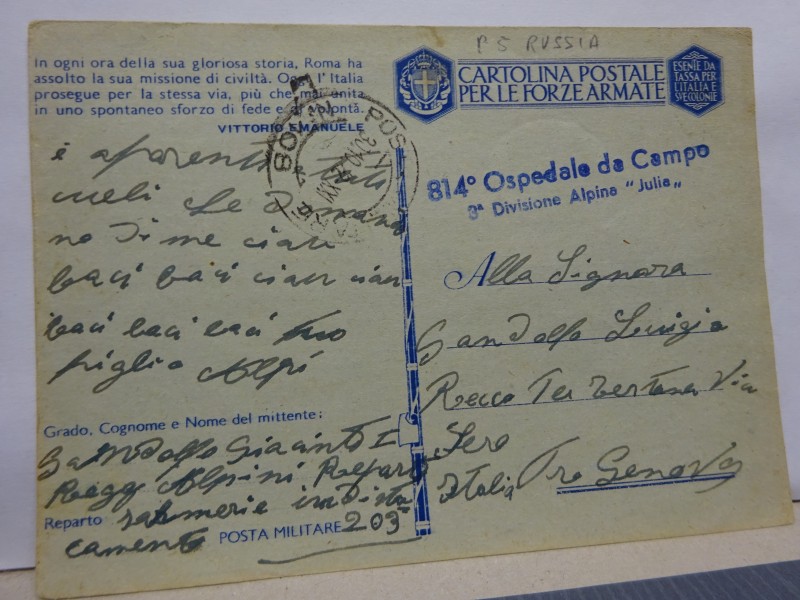 P 5 RUSSIA
In ogni ora della sua gloriosa storia, Roma ha
assolto la sua missione di civiltà. Oggi l'Italia
prosegue per la stessa via, più che mai unita
in uno spontaneo sforzo di fede e di volontà.
VITTORIO EMANUELE
CARTOLINA POSTALE
PER LE FORZE ARMATE
ESENTE DA
TASSA PER
L'ITALIA E
SUE COLONIE
814° Ospedale da Campo
3ª Divisione Alpina "Julia"
POS
e
Le
no di me ciau
baci baci ciau ciau
baci baci baci tuo
figlio Alpi
Grado, Cognome e Nome del mittente:
Gandolfo Giacinto I
Regg Alpini Reparto
salmerie in dista
Reparto
camento
POSTA MILITARE 203
Alla Signora
Gandolfo Luigia
Via
Italia Genova